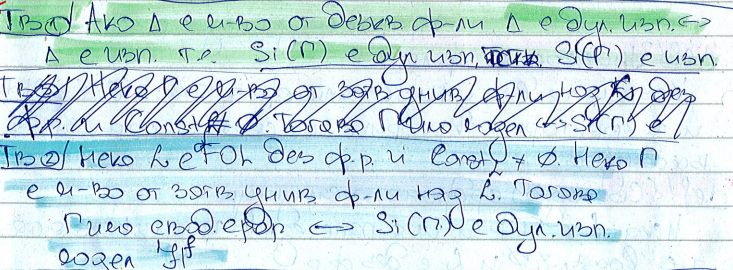 Тв① Ако Δ е м-во от безкв. ф-ли Δ е бул. изп. ⇔
Δ е изп. т.е. Si(Γ) е бул. изп. Si(Γ) е изп.
Тв② Нека Γ е м-во от затв. унив. ф-ли над без
ф.р. и Const ≠ ∅. Тогава Γ има модел ⇔ Si(Γ) е
Тв② Нека L е FOL без ф.р. и Const_L ≠ ∅. Нека Γ
е м-во от затв. унив. ф-ли над L. Тогава
Γ има ⇔ Si(Γ) е бул. изп.
модел iff